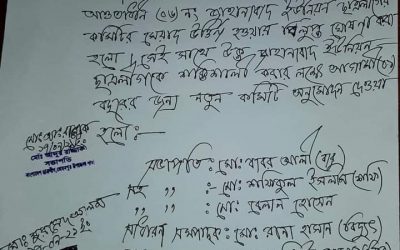 আওতাধীন (০৬) নং শাহানাবাদ ইউনিয়ন ছাত্রলীগের
কমিটির মেয়াদ উত্তীর্ন হওয়ায় বিলুপ্ত ঘোষনা করা
হলো। সেই সাথে উক্ত শাহানাবাদ ইউনিয়ন
ছাত্রলীগকে শক্তিশালী করার লক্ষ্যে আগামী (০১)
বছরের জন্য নতুন কমিটি অনুমোদন দেওয়া
হলো:-
সভাপতি : মো: বাবর আলী (বাবু)
সহ ,, : মো: শফিকুল ইসলাম (শফি)
,, ,, : মো: বেলাল হোসেন
সাধারন সম্পাদক: মো: রানা হাসান (বিদ্যুৎ)
সভাপতি